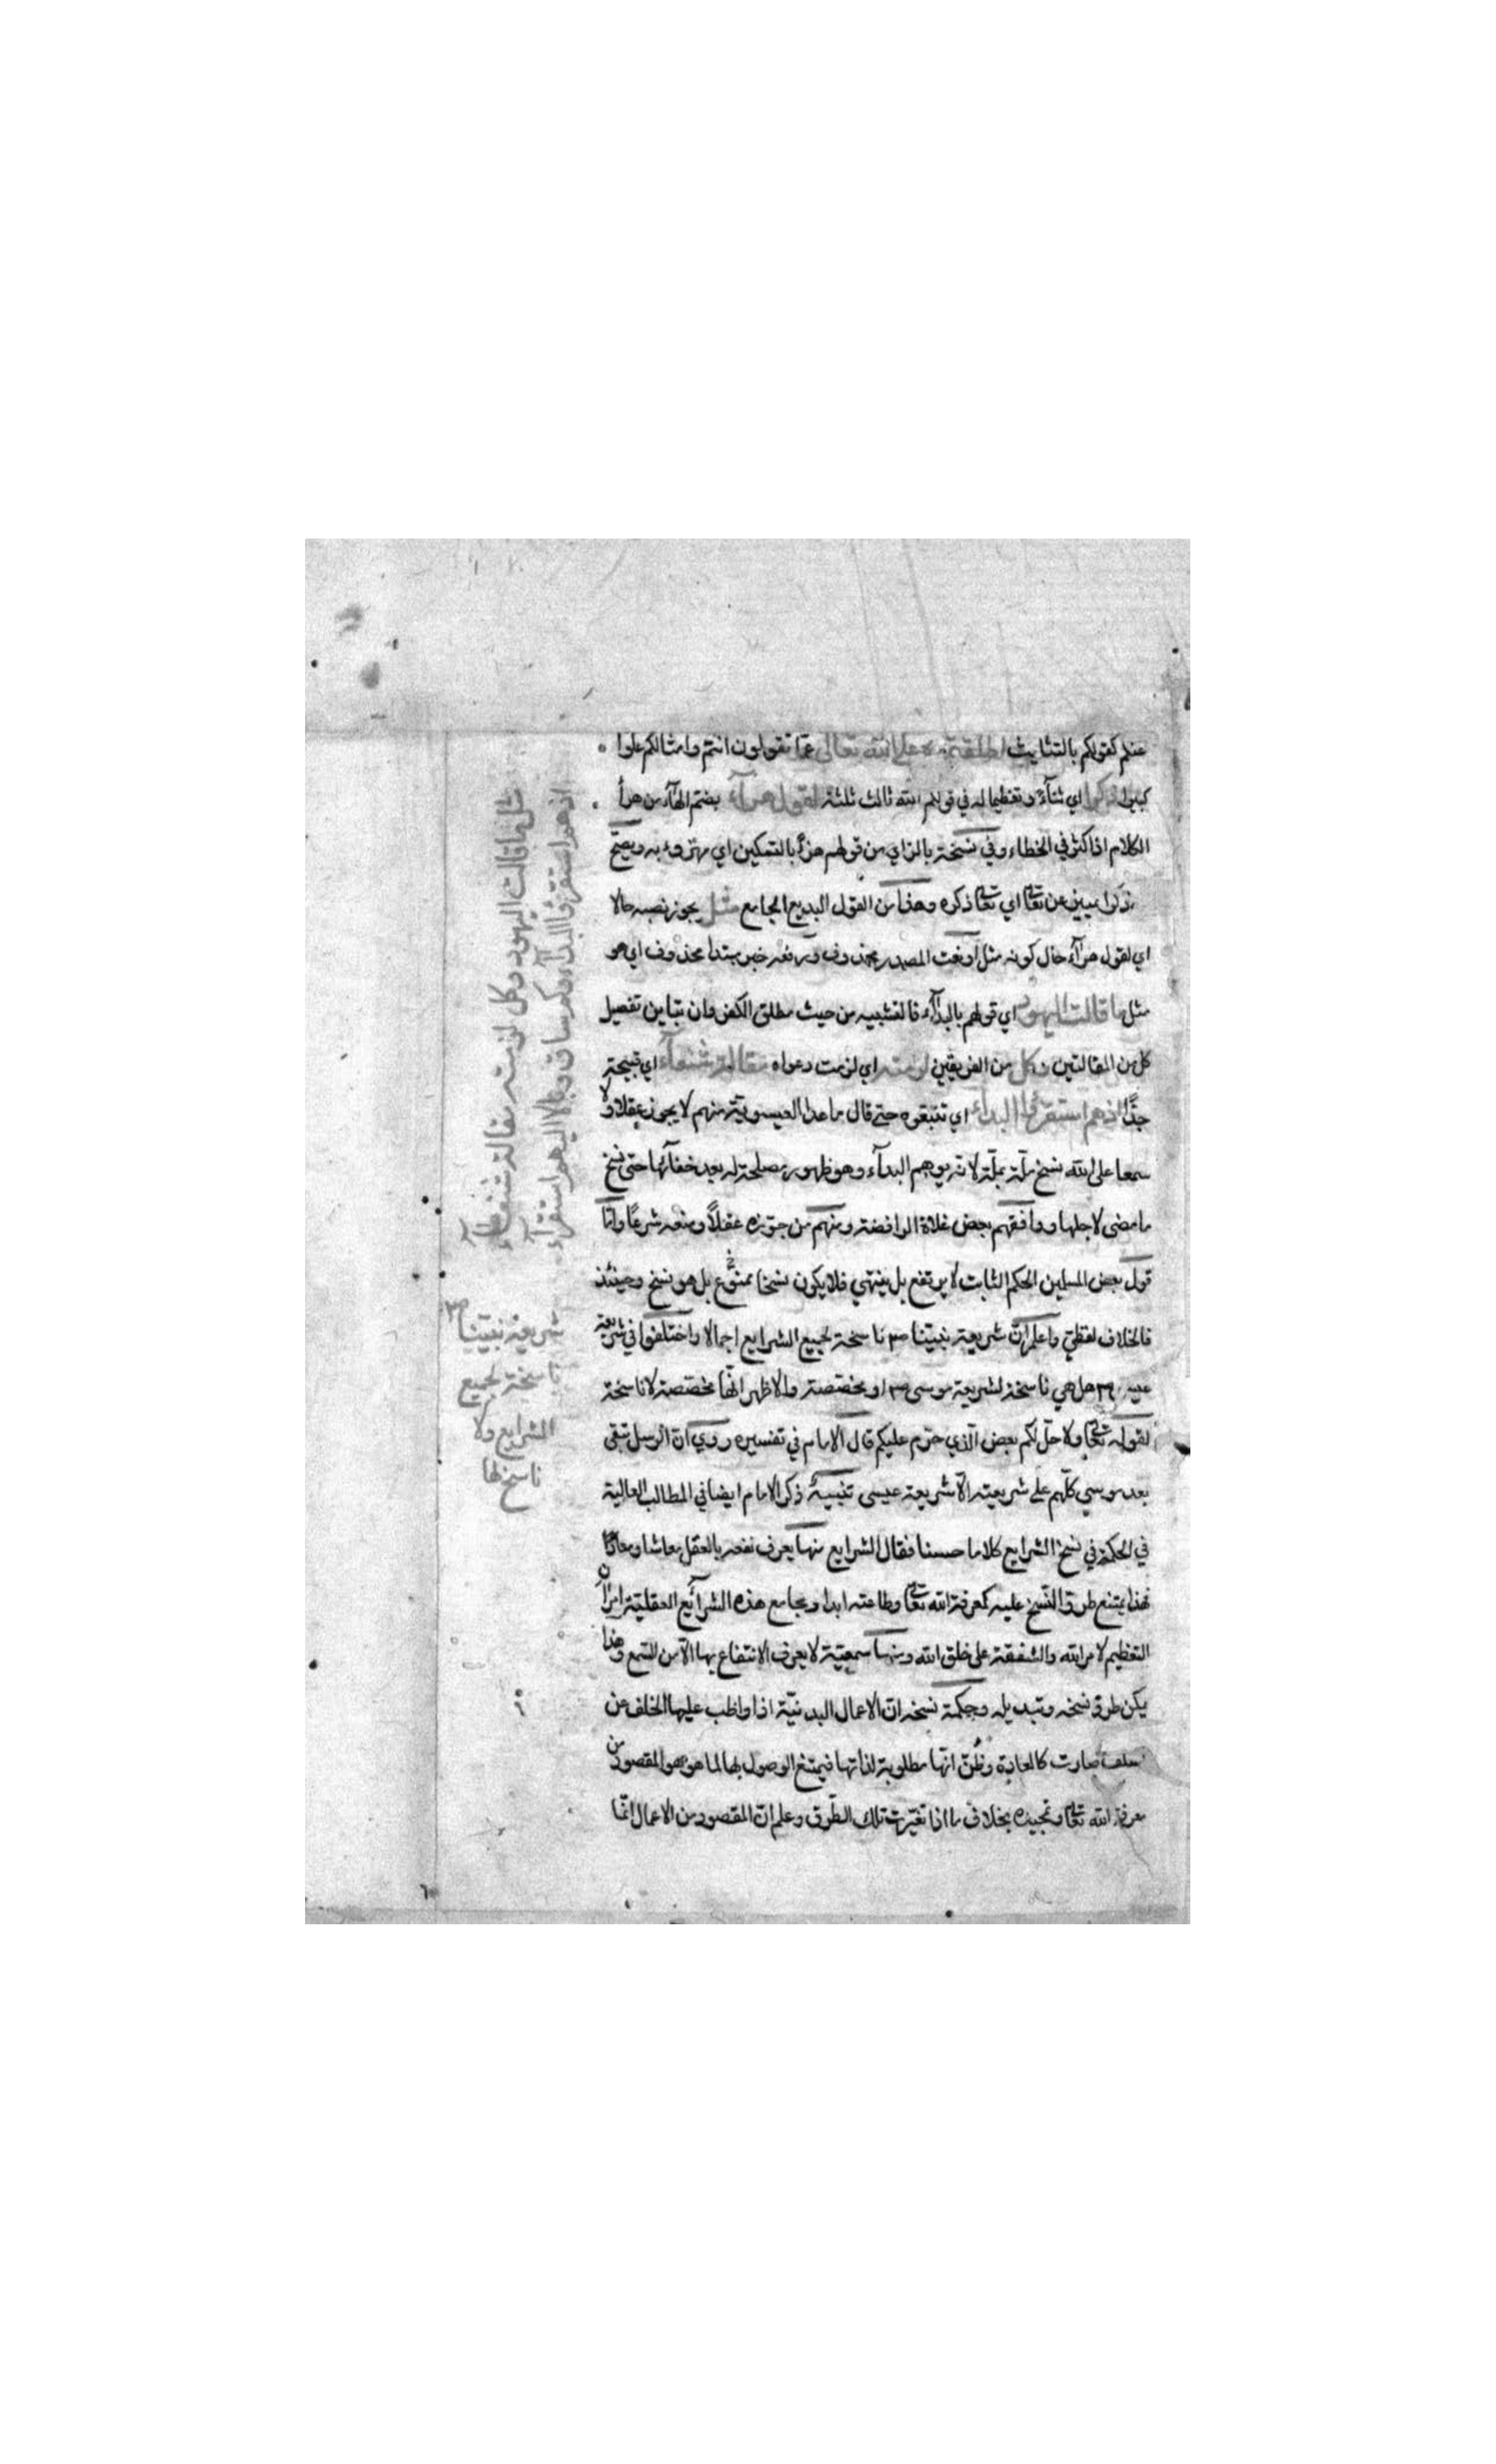 عنكم كقولكم بالتثليث اطلقتموه على الله تعالى عمّا تقولون انتم وامثالكم علوا
كبيرا ذكرا اي ثنآء وتعظيما له في قولكم الله ثالث ثلثة لقول هرآء بضم الهآء من هرأ
الكلام اذا اكثر في الخطاء وفي نسخة بالزاي من قولهم هزء بالتسكين اي مهزوء به ويصحّ
ذكرا عن تعا اي تعا ذكره وهذا من القول البديع الجامع مثل يجوز نصبه حالا
اي لقول هرآء حال كونه مثل او نعت المصدر محذوف ورفعه خبر مبتدا محذوف اي هو
مثل ما قالت اليهود اي قولهم بالبدآء فالتشبيه من حيث مطلق الكفر وان تباين تفصيل
كل من المقالتين وكل من الفريقين لزمته اي لزمت دعواه مقالة شنعآء اي قبيحة
جدًّا اذ هم استقرؤا البدآء اي تتبعوه حتى قال ما عدا العيسوية منهم لا يجوز عقلا ولا
سمعا على الله نسخ ملّة بملّة لانه يوهم البدآء وهو ظهور مصلحة له بعد خفآئها حتى نسخ
ما مضى لاجلها ووافقهم بعض غلاة الرافضة ومنهم من جوّزه عقلاً ومنعه شرعًا وامّا
قول بعض المسلمين الحكم الثابت لا يرتفع بل ينتهي فلا يكون نسخا ممنوع بل هو نسخ وحينئذ
فالخلاف لفظيّ واعلم ان شريعة نبيّنا صم ناسخة لجميع الشرايع اجمالا واختلفوا في شريعة
عيسى صم هل هي ناسخة لشريعة موسى صم او مخصّصة والاظهر انّها مخصّصة لا ناسخة
لقوله تعا ولاحلّ لكم بعض الّذي حرّم عليكم قال الامام في تفسيره روي انّ الرسل تبقى
بعد موسى كلّهم على شريعته الّا شريعة عيسى تنبيهٌ ذكر الامام ايضا في المطالب العالية
في الحكمة في نسخ الشرايع كلاما حسنا فقال الشرايع منها يعرف نفعه بالعقل معاشا ومعادًا
فهذا يمتنع طروّ النّسخ عليه كمعرفة الله تعا وطاعته ابدا ومجامع هذه الشرآيع العقليّة امران
التعظيم لامر الله والشفقة على خلق الله ومنها سمعيّة لا يعرف الانتفاع بها الّا من السّمع وهذا
يمكن طروّ نسخه وتبديله وحكمة نسخه انّ الاعمال البدنيّة اذا واظب عليها الخلف عن
السلف صارت كالعادة وظُنّ انّها مطلوبة لذاتها فيمتنع الوصول بها لما هو المقصود من
معرفة الله تعا وتمجيده بخلاف ما اذا تغيّرت تلك الطّرق وعلم انّ المقصود من الاعمال انّما
مثل ما قالت اليهود وكل لزمته مقالة شنعآء
اذ هم استقرؤا البدآء وكم ساق وبالا اليهم استقرآء
شريعة نبيّنا صم
ناسخة لجميع
الشرايع ولا
ناسخ لها